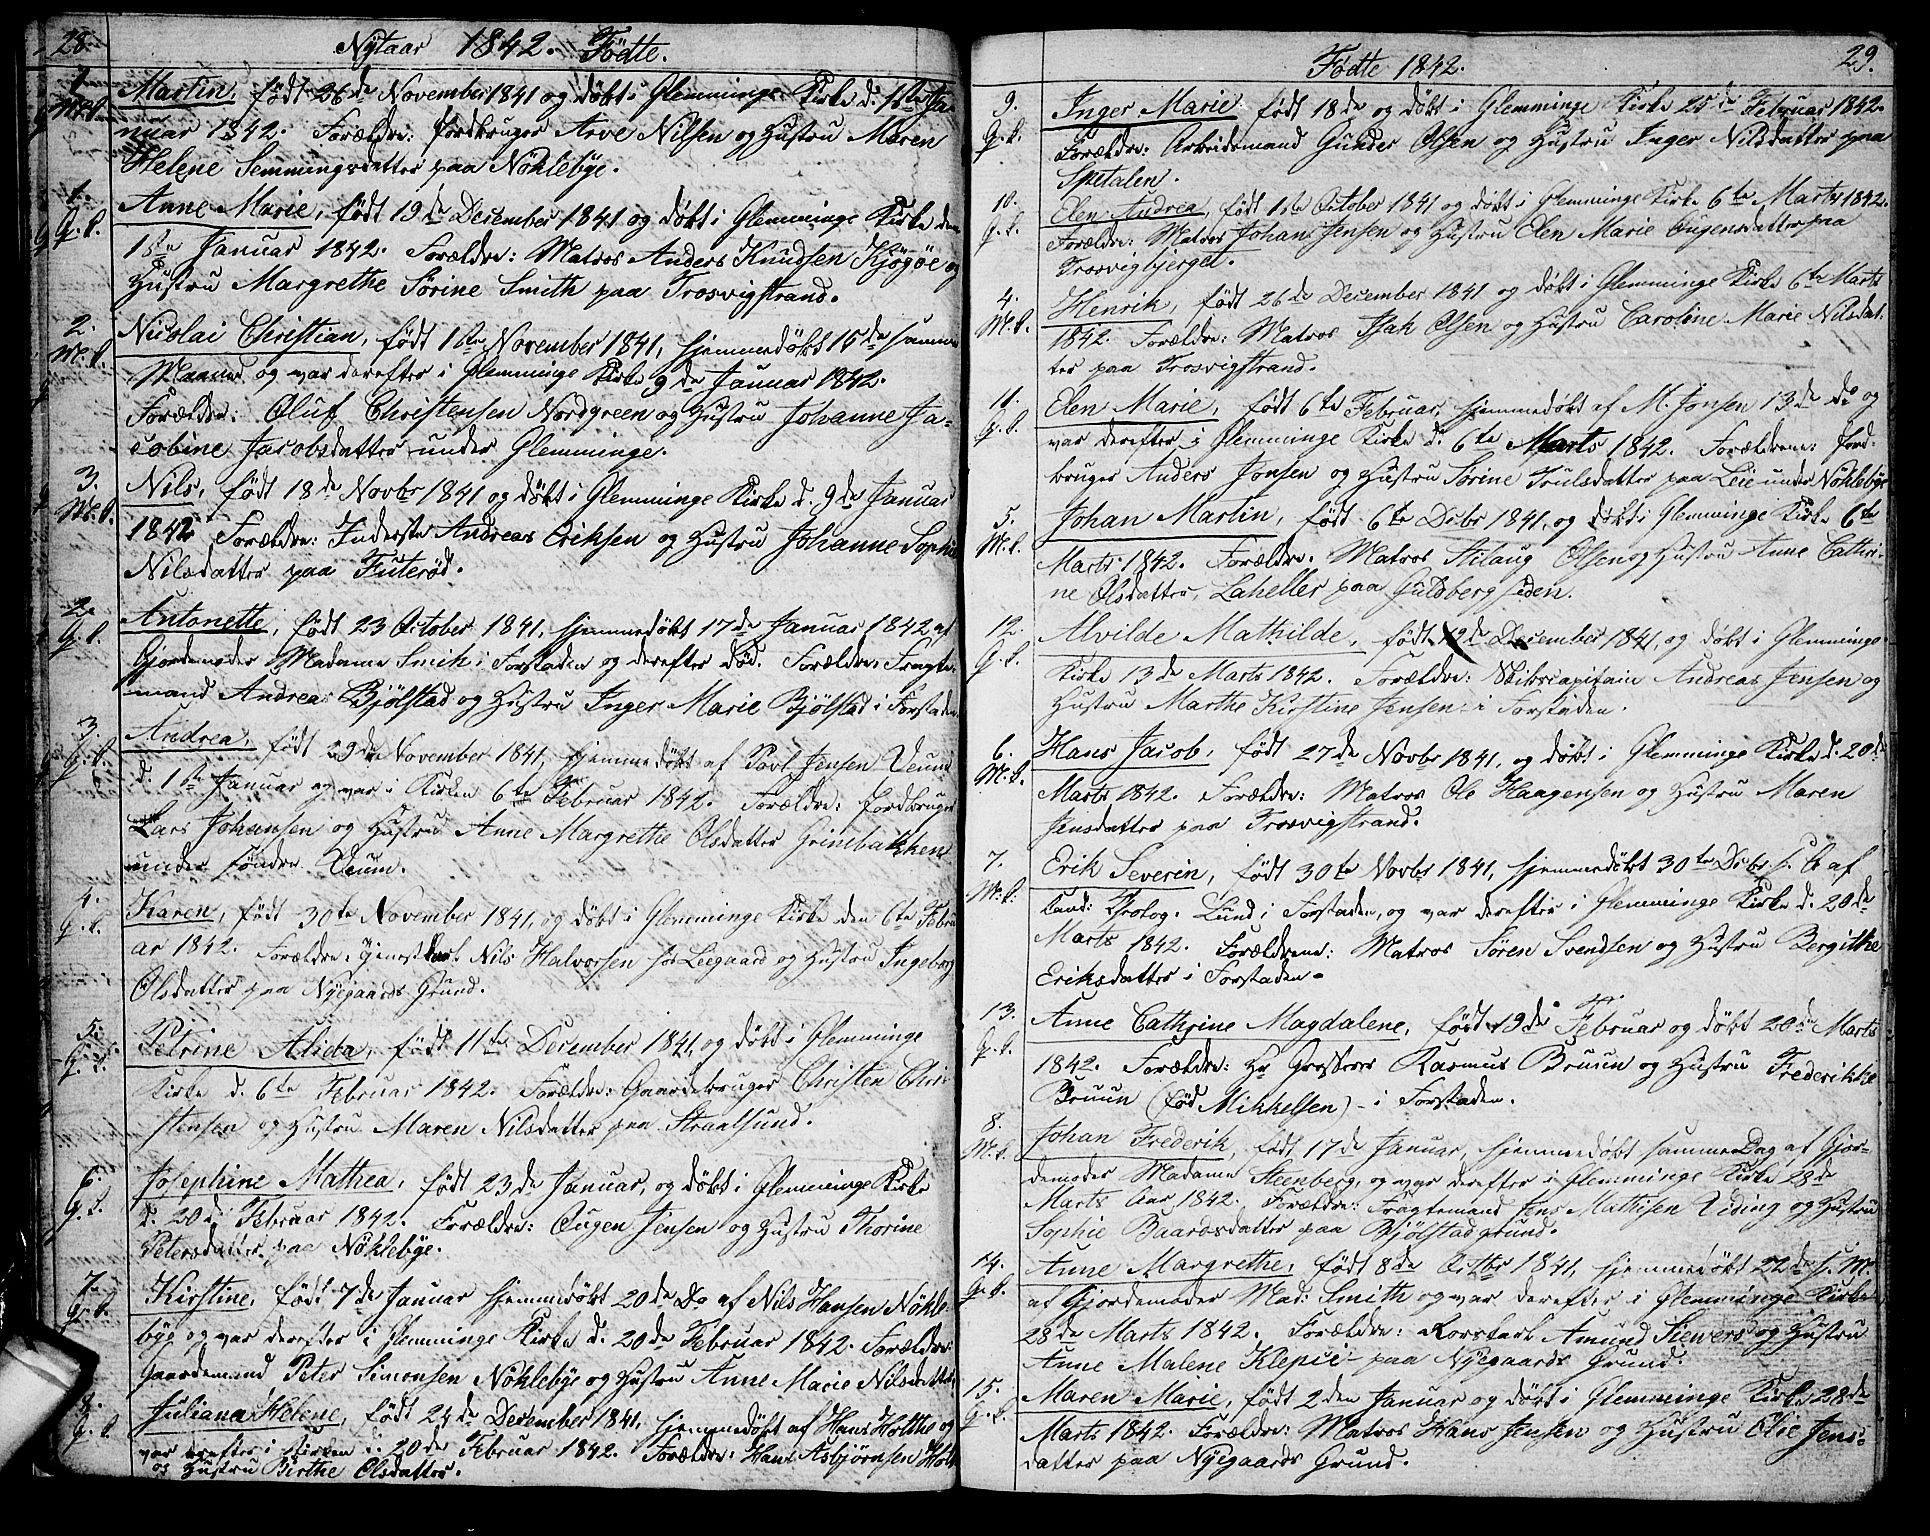 28.
Nytaar 1842. Födte.
1.
M.k.
Martin, født 26de November 1841 og døbt i Glemminge Kirke d. 1ste Ja-
nuar 1842. Forældre: Jordbruger Arve Nilsen og Hustru Maren
Helene Semmingsdatter paa Nöklebye.
1.
Q.k.
Anne Marie, født 19de December 1841 og døbt i Glemminge Kirke den
1ste Januar 1842. Forældre: Matros Anders Knudsen Kjøgöe og
Hustru Margrethe Sørine Smith paa Trosvigstrand.
2.
M.k.
Nicolai Christian, født 1ste November 1841, hjemmedøbt 15de samme
Maaned og var derefter i Glemminge Kirke 9de Januar 1842.
Forældre: Oluf Christensen Nordgreen og Hustru Johanne Ja-
cobine Jacobsdatter under Glemminge.
3.
M.k.
Nils, født 18de Novbr 1841 og døbt i Glemminge Kirke d. 9de Januar
1842 Forældre: Inderste Andreas Eriksen og Hustru Johanne Sophie
Nilsdatter paa Futerød.
2.
Q.k.
Antonette, født 23 October 1841, hjemmedøbt 17de Januar 1842 af
Gjordemoder Madame Smith i Forstaden og derefter død. Forældre: Fragte-
mand Andreas Bjølstad og Hustru Inger Marie Bjølstad i Forstaden.
3.
Q.k.
Andrea, født 29de November 1841, hjemmedøbt af Povl Jensen Veum
d. 1ste Januar og var i Kirken 6te Februar 1842. Forældre: Jordbruger
Lars Johansen og Hustru Anne Margrethe Olsdatter Grimbakken
under søndre Veum.
4.
Q.k.
Karen, født 30te November 1841, og døbt i Glemminge Kirke den 6te Febru-
ar 1842. Forældre: Tjenestkarl Nils Halvorsen hos Leegaard og Hustru Ingeborg
Olsdatter paa Nyegaards Grund.
5.
Q.k.
Petrine Alida, født 11te December 1841, og døbt i Glemminge
Kirke d. 6te Februar 1842. Forældre: Gaardebruger Christen Chri-
stensen og Hustru Maren Nilsdatter paa Straalsund.
6.
Q.k.
Josephine Mathea, født 23de Januar, og døbt i Glemminge Kirke
d. 20de Februar 1842. Forældre: Ougen Jensen og Hustru Thorine
Petersdatter paa Nöklebye.
7.
Q.k.
Kirstine, født 7de Januar hjemmedøbt 20de Do af Nils Hansen Nökle-
bye og var derefter i Glemminge Kirke d. 20de Februar 1842. Forældre:
Gaardemand Peter Simonsen Nöklebye og Hustru Anne Marie Nilsdatter.
8.
Q.k.
Juliana Helene, født 24de December 1841, hjemmedøbt af Hans Holthe og
var derefter i Kirken d. 20de Februar 1842. Forældre: Hans Asbjørnsen Holt
og Hustru Birthe Olsdatter.
29.
Födte 1842.
9.
Q.k.
Inger Marie født 18de og døbt i Glemminge Kirke 25de Februar 1842.
Forældre: Arbeidsmand Gunder Olsen og Hustru Inger Nilsdatter paa
Spetalen.
10.
Q.k.
Elen Andrea, født 1ste October 1841 og døbt i Glemminge Kirke 6te Marts 1842.
Forældre: Matros Johan Jensen og Hustru Elen Marie Ougensdatter paa
Trosvigbjerget.
4.
M.k.
Henrik, født 26de December 1841 og døbt i Glemminge Kirke 6te Marts
1842. Forældre: Matros Isak Olsen og Hustru Caroline Marie Nilsdat-
ter paa Trosvigstrand.
11.
Q.k.
Elen Marie, født 6te Februar, hjemmedøbt af M. Jonsen 13de do og
var derefter i Glemminge Kirke d. 6te Marts 1842. Forældrene: Jord-
bruger Anders Jonsen og Hustru Sørine Trulsdatter paa Leie under Nöklebye
5.
M.k.
Johan Martin, født 6te Decbr 1841, og døbt i Glemminge Kirke 6te
Marts 1842. Forældre: Matros Stilaug Olsen og Hustru Anne Cathri-
ne Olsdatter, Laheller paa Guldbergsiden.
12.
Q.k.
Alvilde Mathilde, født 12de December 1841, og døbt i Glemminge
Kirke 13de Marts 1842. Forældre: Skibscapitain Andreas Jensen og
Hustru Marthe Kirstine Jensen i Forstaden.
6.
M.k.
Hans Jacob, født 27de Novbr 1841, og døbt i Glemminge Kirke d. 20de
Marts 1842. Forældre: Matros Ole Haagensen og Hustru Maren
Jensdatter paa Trosvigstrand.
7.
M.k.
Erik Severin, født 30te Novbr 1841, hjemmedøbt 30te Decbr s. A. af
Kand: Theolog. Lund i Forstaden, og var derefter i Glemminge Kirke d. 20de
Marts 1842. Forældrene: Matros Søren Svendsen og Hustru Bergithe
Eriksdatter i Forstaden.
13.
Q.k.
Anne Cathrine Magdalene, født 19de Februar og døbt 20de Marts
1842. Forældre: Hr Grosserer Rasmus Bruun og Hustru Frederikke
Bruun (født Mikkelsen) i Forstaden.
8.
M.k.
Johan Frederik, født 17de Januar, hjemmedøbt samme Dag af Gjor-
demoder Madame Steenberg, og var derefter i Glemminge Kirke 28de
Marts Aar 1842. Forældre: Fragtemand Jens Mathisen Uding og Hustru
Sophie Baardsdatter paa Bjølstadgrund.
14.
Q.k.
Anne Margrethe, født 8de Octbr 1841, hjemmedøbt 22de s. M.
af Gjordemoder Mad: Smith og var derefter i Glemminge Kirke
28de Marts 1842. Forældre: Korskarl Amund Siewers og Hustru
Anne Malene Klepcie paa Nyegaards Grund.
15.
Q.k.
Maren Marie, født 2den Januar og døbt i Glemminge Kirke 28de
Marts 1842. Forældre: Matros Hans Jensen og Hustru Olie Jens-
datter paa Nyegaards Grund.